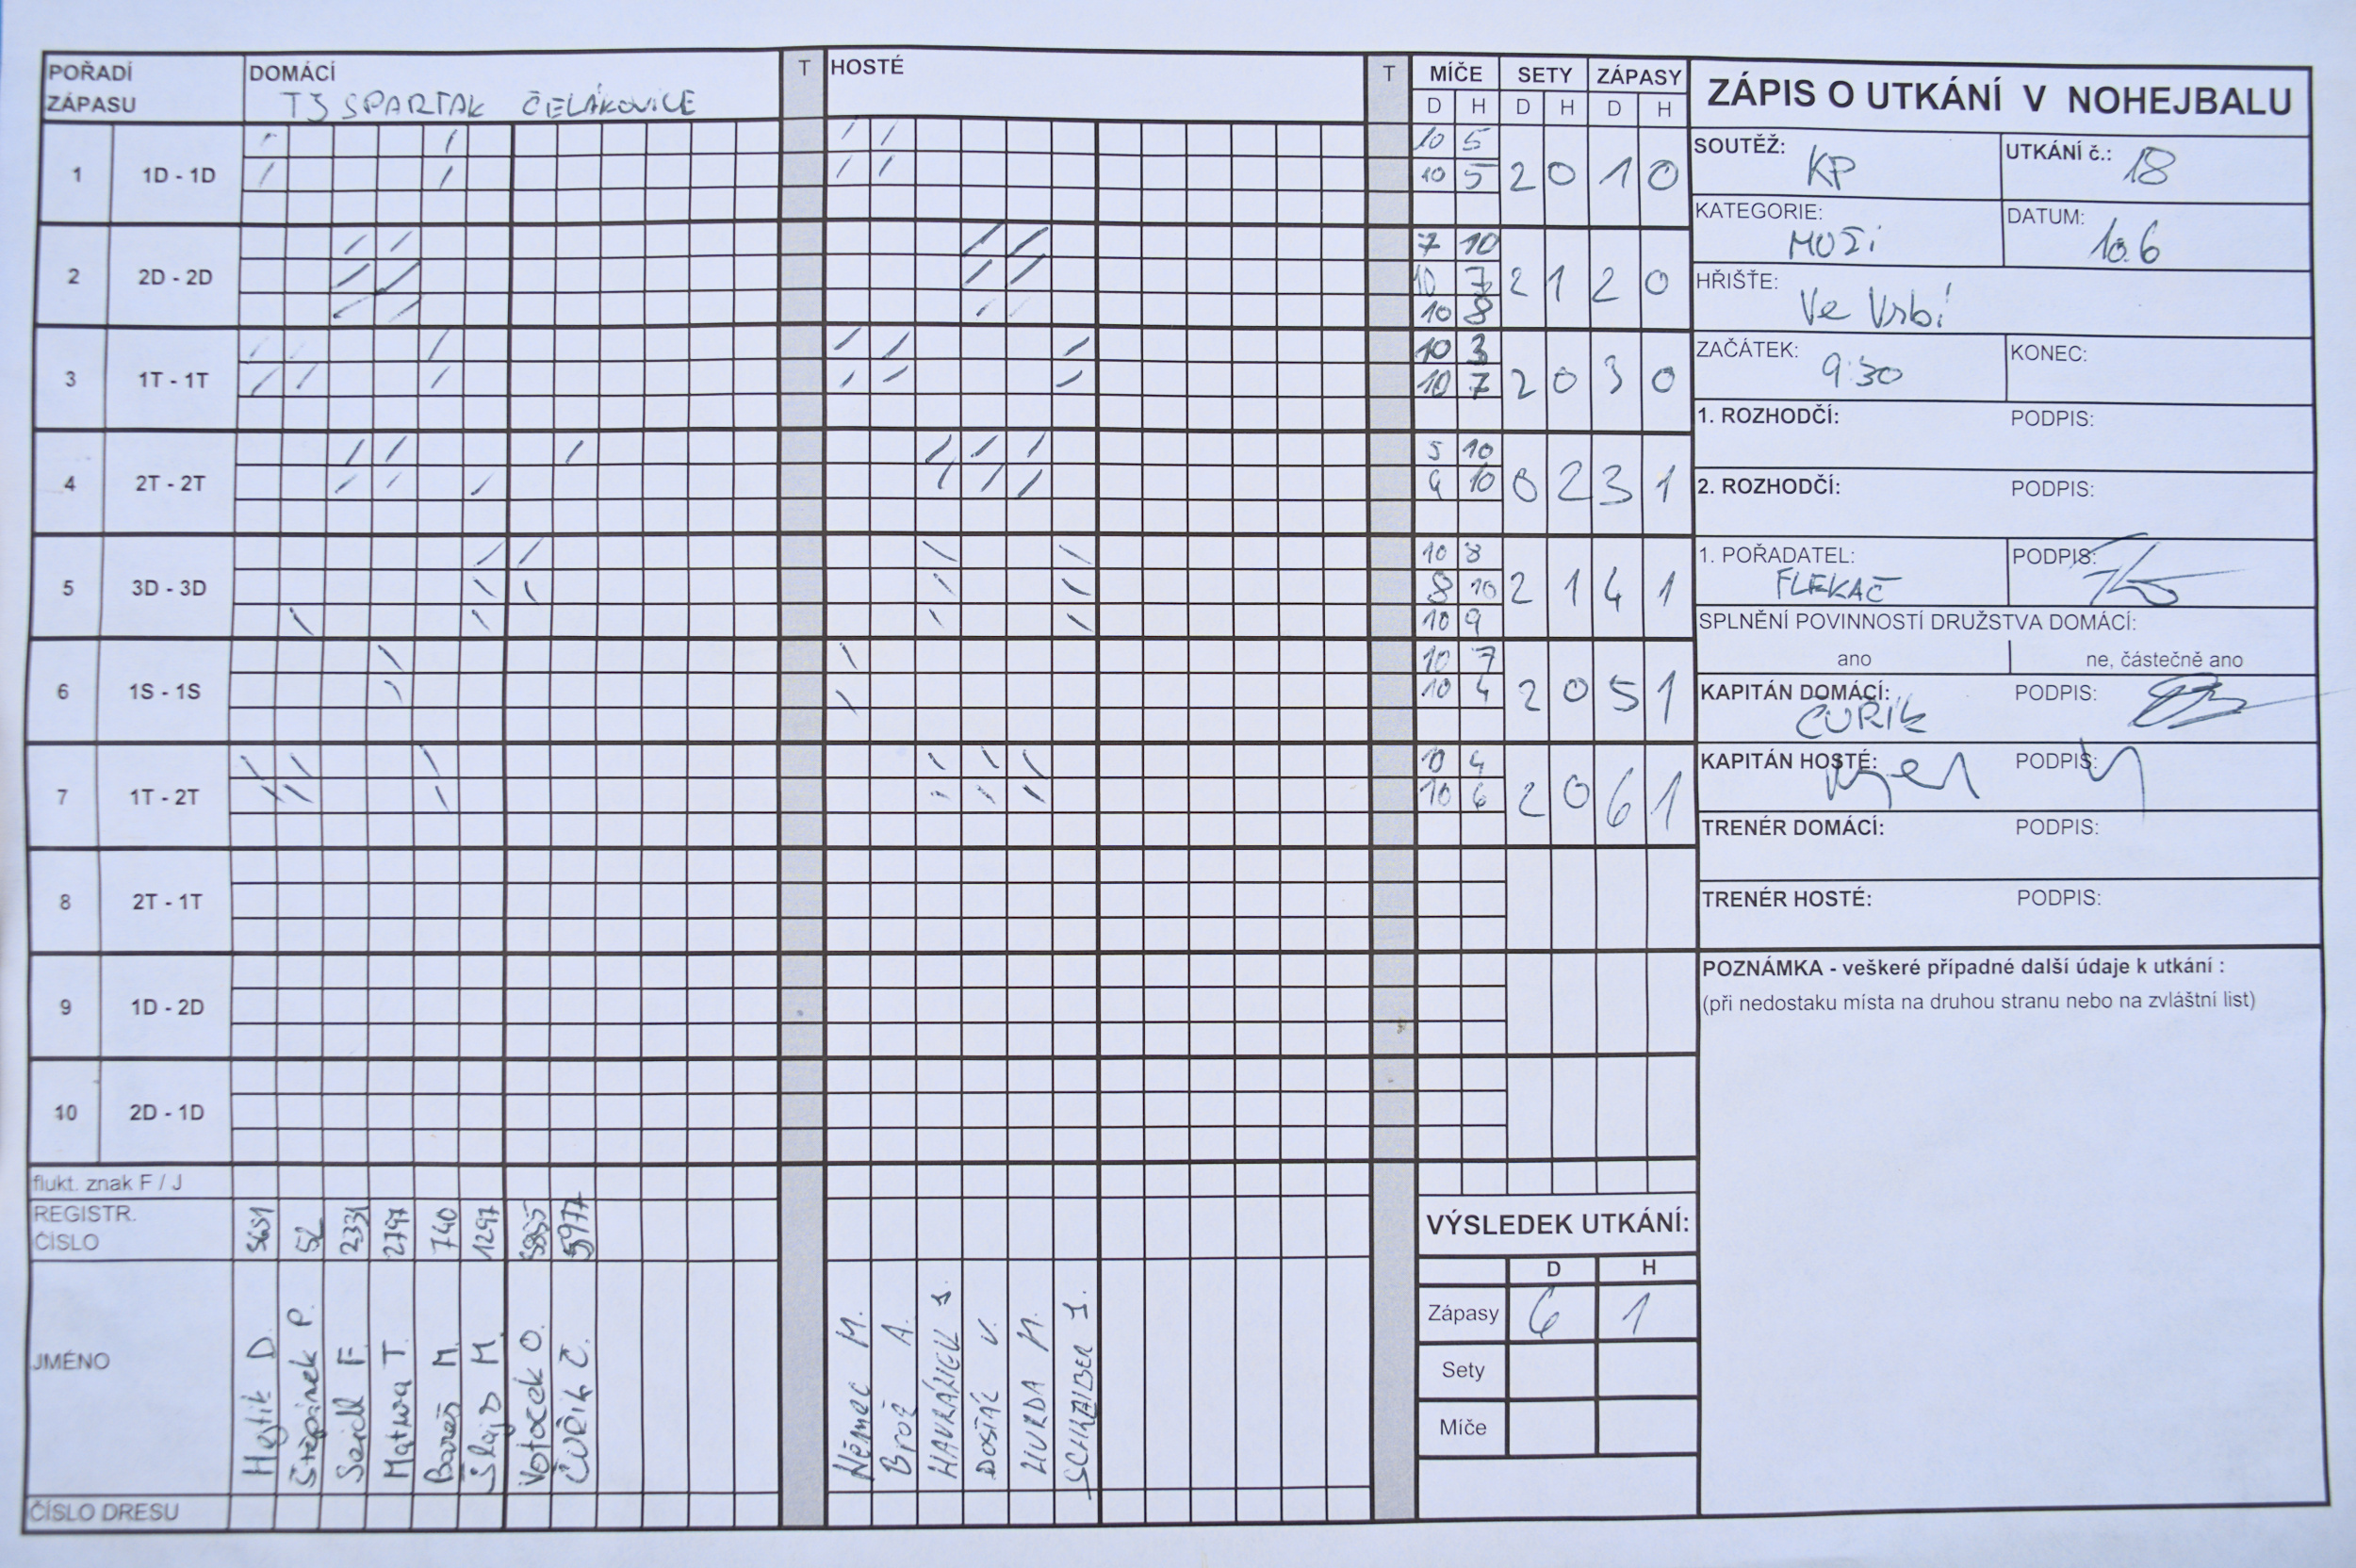 POŘADÍ ZÁPASU
DOMÁCÍ
TJ SPARTAK ČELÁKOVICE
T
HOSTÉ
T
MÍČE SETY ZÁPASY
D H D H D H
1 1D - 1D
10 5
10 5
2 0 1 0
2 2D - 2D
7 10
10 7
10 8
2 1 2 0
3 1T - 1T
10 3
10 7
2 0 3 0
4 2T - 2T
5 10
4 10
0 2 3 1
5 3D - 3D
10 8
8 10
10 9
2 1 4 1
6 1S - 1S
10 7
10 4
2 0 5 1
7 1T - 2T
10 4
10 6
2 0 6 1
8 2T - 1T
9 1D - 2D
10 2D - 1D
flukt. znak F / J
REGISTR. ČÍSLO
52 2331 2797 740 1297 5977
JMÉNO
Hejtík D.
Štěpánek P.
Seidl F.
Matura T.
Bareš M.
Šlajs M.
Votoček O.
Čuřík Č.
Němec M.
Brož A.
HAVRÁNEK J.
DOSTÁL V.
HURDA M.
ČÍSLO DRESU
ZÁPIS O UTKÁNÍ V NOHEJBALU
SOUTĚŽ: KP
UTKÁNÍ č.: 18
KATEGORIE: MUŽi
DATUM: 10.6
HŘIŠTE: Ve Vrbí
ZAČÁTEK: 9:30
KONEC:
1. ROZHODČÍ: PODPIS:
2. ROZHODČÍ: PODPIS:
1. POŘADATEL: FLEKAČ
PODPIS:
SPLNĚNÍ POVINNOSTÍ DRUŽSTVA DOMÁCÍ:
ano ne, částečně ano
KAPITÁN DOMÁCÍ: ČUŘÍK
PODPIS:
KAPITÁN HOSTÉ: PODPIS:
TRENÉR DOMÁCÍ: PODPIS:
TRENÉR HOSTÉ: PODPIS:
POZNÁMKA - veškeré případné další údaje k utkání :
(při nedostaku místa na druhou stranu nebo na zvláštní list)
VÝSLEDEK UTKÁNÍ:
D H
Zápasy 6 1
Sety
Míče